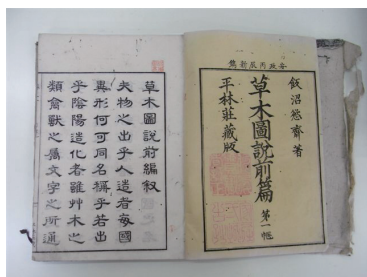 安政丙辰新鐫
飯沼慾齋著
草木圖說前篇 第一帙
平林莊藏版
草木圖說前編叙
夫物之出乎人造者每國
異形何可同名稱乎若出
乎陰陽造化者雖艸木之
類禽獸之屬文字之所通